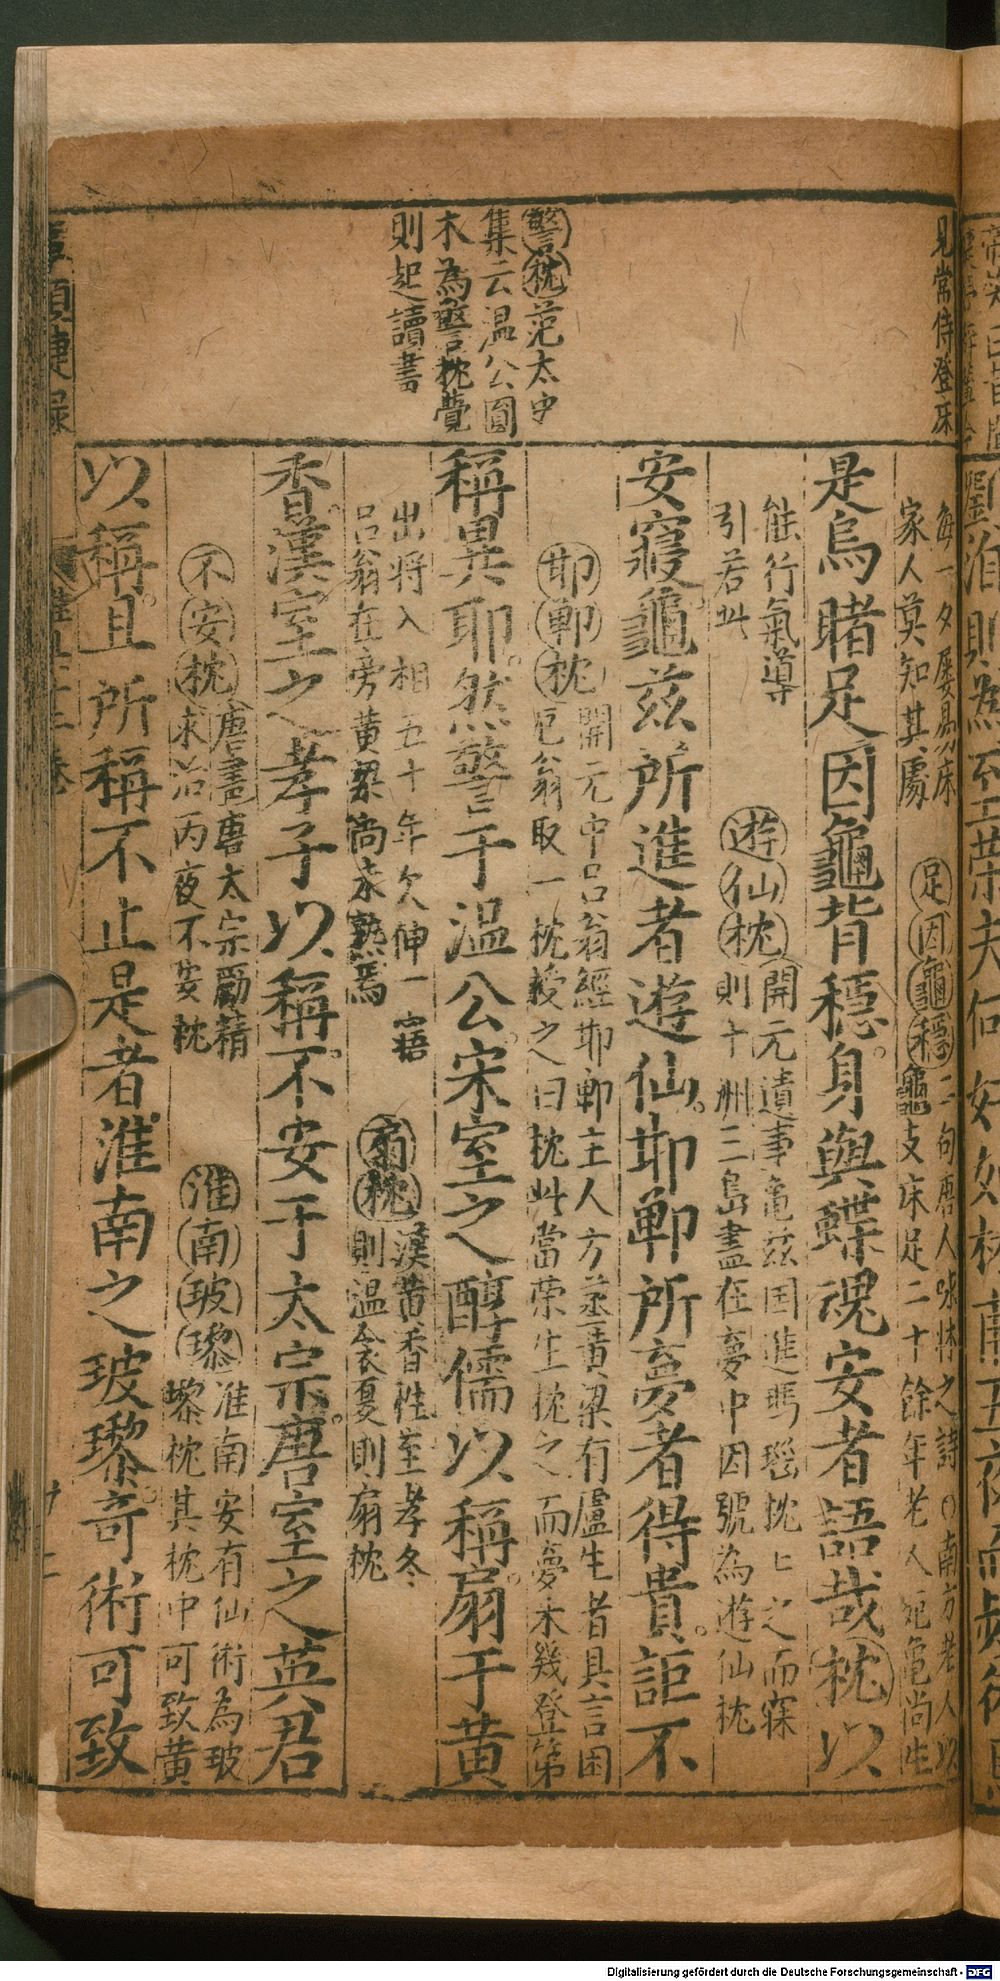 見常侍登床
警枕范太史
集云温公圓
木為警枕覺
則起讀書
每一夕屡易床
家人莫知其處
足因龜穩二句唐人咏牀之詩〇南方老人以
龜支床足二十餘年老人死龜尚生
是烏賭足因龜背穩身與蝶魂安者語哉枕以
能行氣導
引若此
遊仙枕開元遺事龜兹国進瑪瑙枕匕之而寐
則十洲三島盡在夢中因號為遊仙枕
安寢龜茲所進者遊仙邯鄲所夢者得貴詎不
邯鄲枕開元中吕翁經邯鄲主人方蒸黄梁有盧生者具言困
厄翁取一枕授之曰枕此當荣生枕之而夢未幾登第
稱異耶然警于温公宋室之醇儒以稱扇于黄
出将入相五十年欠伸一寤
吕翁在旁黄梁尚未熟焉
扇枕漢黄香性至孝冬
則温衾夏則扇枕
香漢室之孝子以稱不安于太宗唐室之英君
不安枕唐書唐太宗勵精
求治丙夜不安枕
淮南玻瓈淮南安有仙術為玻
瓈枕其枕中可致黄
以稱且所稱不止是者淮南之玻瓈奇術可致
Digitalisierung gefördert durch die Deutsche Forschungsgemeinschaft - DFG